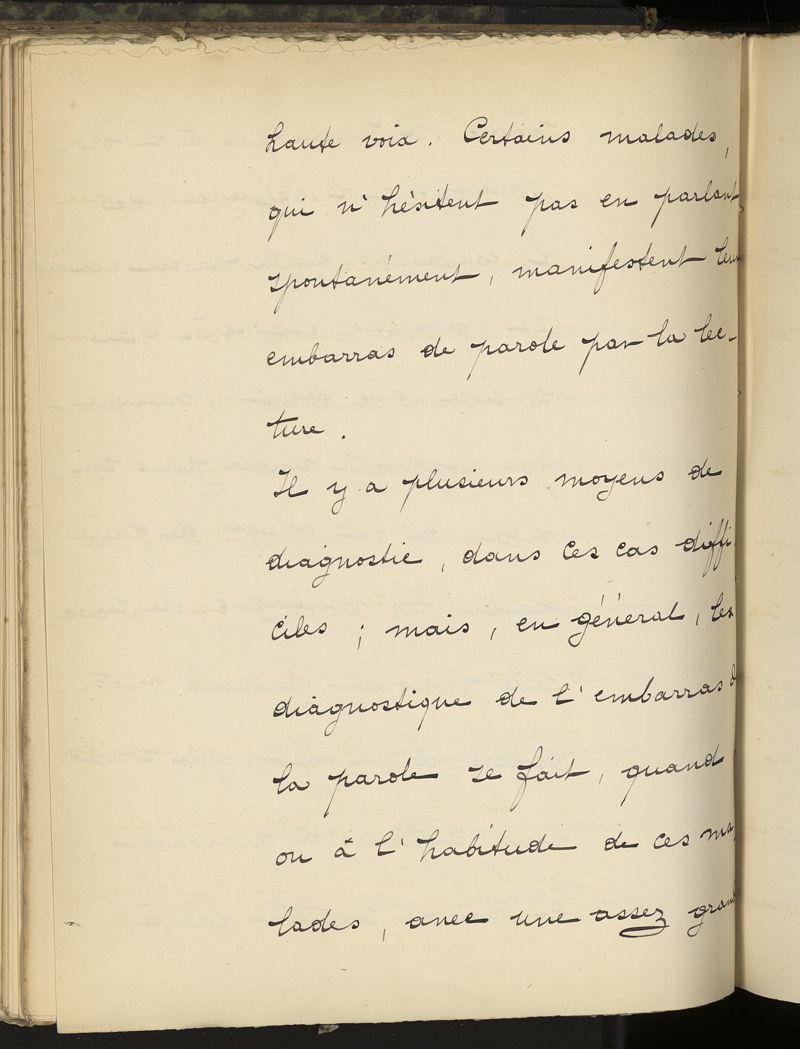 haute voix. Certains malades,
qui n'hésitent pas en parlant
spontanément, manifestent leur
embarras de parole par la lec-
ture.
Il y a plusieurs moyens de
diagnostic, dans ces cas diffi
ciles ; mais, en général, les
diagnostique de l'embarras d
la parole se fait, quand
on à l'habitude de ces ma
lades, avec une assez grand